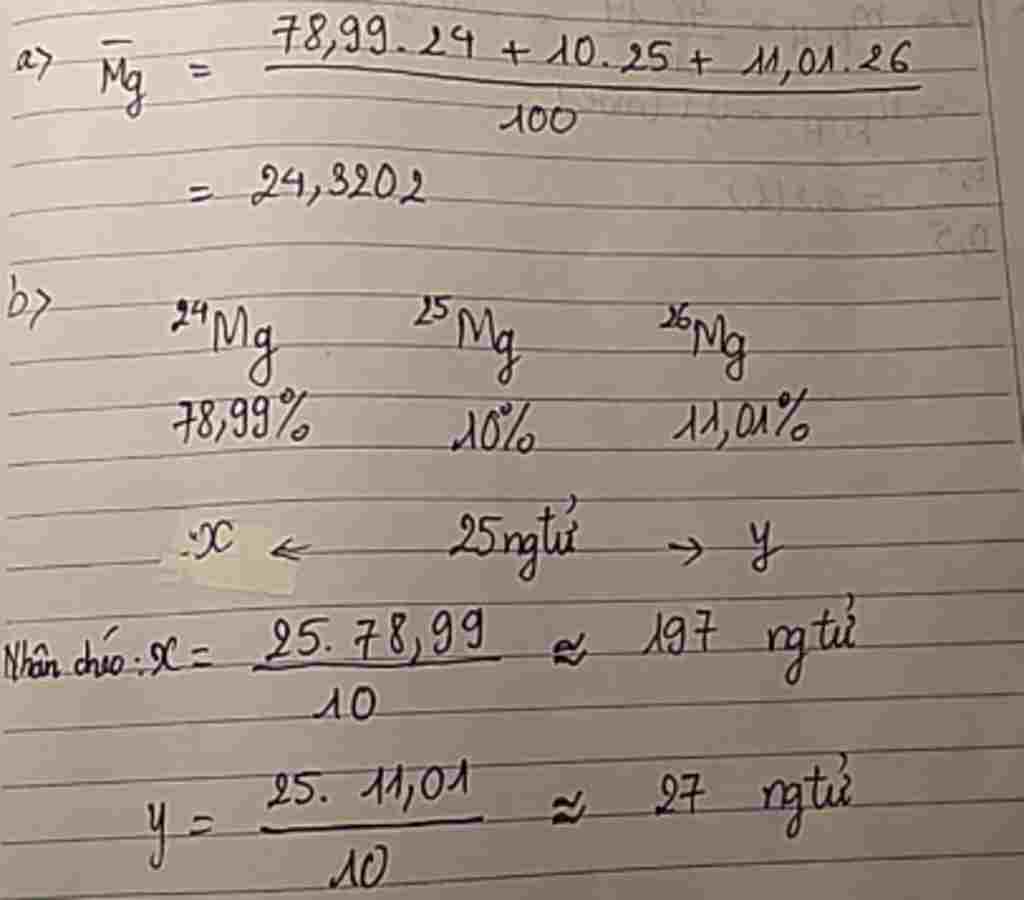 a> M̄g = 78,99.24 + 10.25 + 11,01.26 / 100
= 24,3202
b> ²⁴Mg ²⁵Mg ²⁶Mg
78,99% 10% 11,01%
x ← 25 ngtử → y
Nhân chéo: x = 25. 78,99 / 10 ≈ 197 ngtử
y = 25. 11,01 / 10 ≈ 27 ngtử